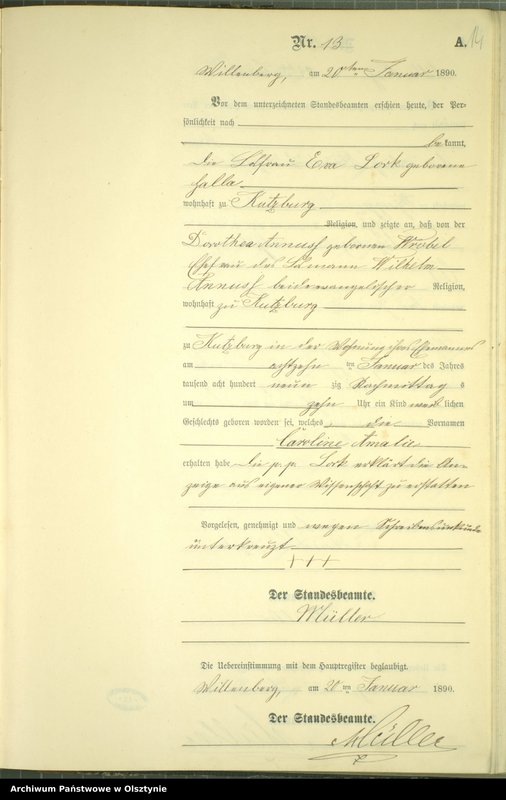 Nr. 13
A. 14
Willenberg, am 20ten Januar 1890.
Vor dem unterzeichneten Standesbeamten erschien heute, der Per-
sönlichkeit nach
bekannt,
die Eva Lork geborene
Galla
wohnhaft zu Kutzburg
Religion, und zeigte an, daß von der
Dorothea Annuss geborenen Wrobel
Ehefrau des Wilhelm
Annuss beide evangelischer Religion,
wohnhaft zu Kutzburg
zu Kutzburg in der Wohnung ihres Ehemannes
am achtzehn ten Januar des Jahres
tausend acht hundert neun zig Nachmittag s
um zehn Uhr ein Kind weiblichen
Geschlechts geboren worden sei, welches die Vornamen
Caroline Amalie
erhalten habe. Die p. p. Lork erklärt die An-
zeige aus eigener Wissenschaft zu erstatten
Vorgelesen, genehmigt und wegen Schreibensunkunde
unterkreuzt
+++
Der Standesbeamte.
Müller
Die Uebereinstimmung mit dem Hauptregister beglaubigt.
Willenberg, am 20ten Januar 1890.
Der Standesbeamte.
Müller
Archiwum Państwowe w Olsztynie